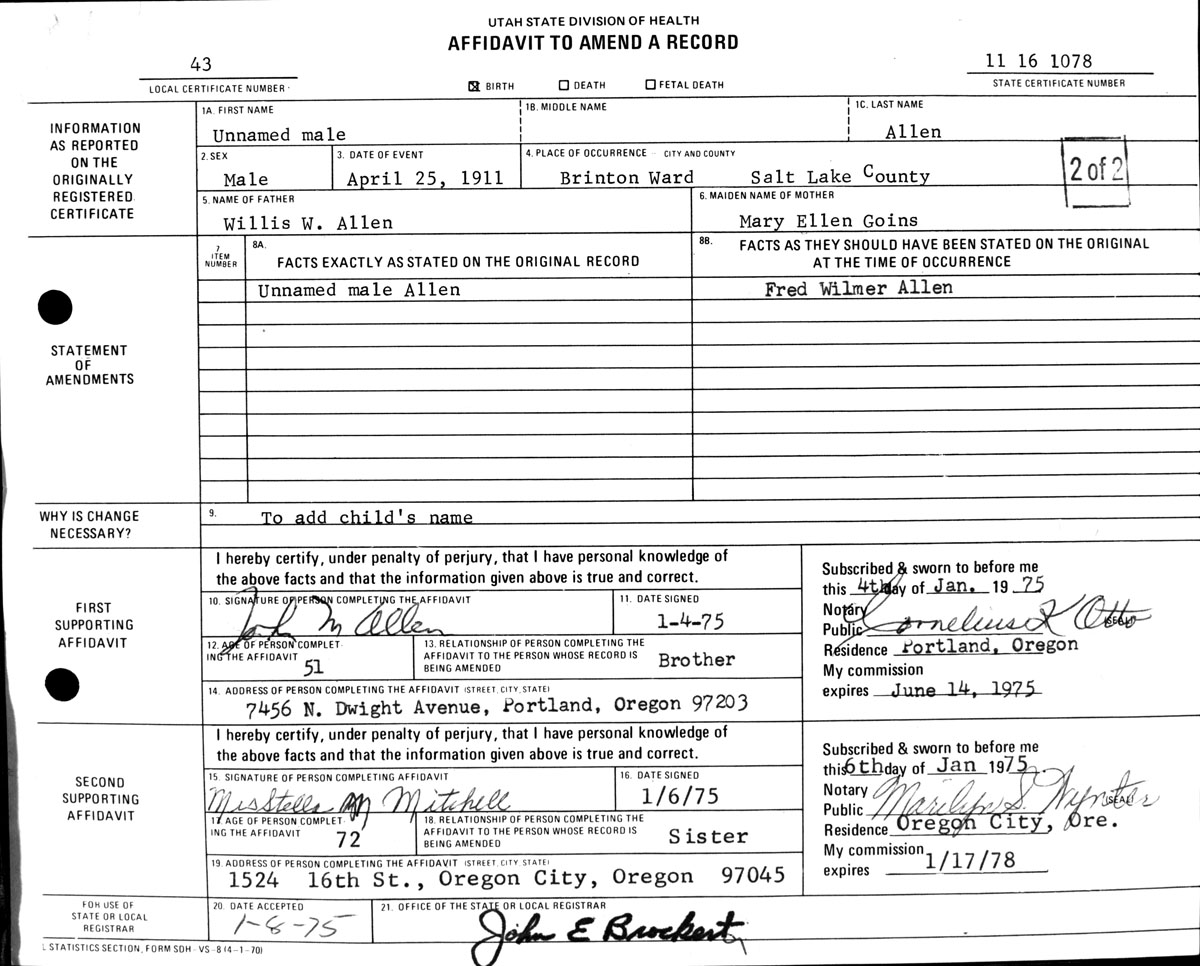 UTAH STATE DIVISION OF HEALTH
AFFIDAVIT TO AMEND A RECORD
43
LOCAL CERTIFICATE NUMBER
☒ BIRTH ☐ DEATH ☐ FETAL DEATH
11 16 1078
STATE CERTIFICATE NUMBER
INFORMATION
AS REPORTED
ON THE
ORIGINALLY
REGISTERED
CERTIFICATE
1A. FIRST NAME
Unnamed male
1B. MIDDLE NAME
1C. LAST NAME
Allen
2. SEX
Male
3. DATE OF EVENT
April 25, 1911
4. PLACE OF OCCURRENCE - CITY AND COUNTY
Brinton Ward Salt Lake County
2 of 2
5. NAME OF FATHER
Willis W. Allen
6. MAIDEN NAME OF MOTHER
Mary Ellen Goins
STATEMENT
OF
AMENDMENTS
7
ITEM
NUMBER
8A.
FACTS EXACTLY AS STATED ON THE ORIGINAL RECORD
8B. FACTS AS THEY SHOULD HAVE BEEN STATED ON THE ORIGINAL
AT THE TIME OF OCCURRENCE
Unnamed male Allen
Fred Wilmer Allen
WHY IS CHANGE
NECESSARY?
9. To add child's name
FIRST
SUPPORTING
AFFIDAVIT
I hereby certify, under penalty of perjury, that I have personal knowledge of
the above facts and that the information given above is true and correct.
10. SIGNATURE OF PERSON COMPLETING THE AFFIDAVIT
John M Allen
11. DATE SIGNED
1-4-75
12. AGE OF PERSON COMPLET-
ING THE AFFIDAVIT 51
13. RELATIONSHIP OF PERSON COMPLETING THE
AFFIDAVIT TO THE PERSON WHOSE RECORD IS
BEING AMENDED
Brother
14. ADDRESS OF PERSON COMPLETING THE AFFIDAVIT (STREET, CITY, STATE)
7456 N. Dwight Avenue, Portland, Oregon 97203
Subscribed & sworn to before me
this 4th day of Jan. 19 75
Notary
Public Cornelius K Otto (SEAL)
Residence Portland, Oregon
My commission
expires June 14, 1975
SECOND
SUPPORTING
AFFIDAVIT
I hereby certify, under penalty of perjury, that I have personal knowledge of
the above facts and that the information given above is true and correct.
15. SIGNATURE OF PERSON COMPLETING AFFIDAVIT
Stella M Mitchell
16. DATE SIGNED
1/6/75
17. AGE OF PERSON COMPLET-
ING THE AFFIDAVIT 72
18. RELATIONSHIP OF PERSON COMPLETING THE
AFFIDAVIT TO THE PERSON WHOSE RECORD IS
BEING AMENDED
Sister
19. ADDRESS OF PERSON COMPLETING THE AFFIDAVIT (STREET, CITY, STATE)
1524 16th St., Oregon City, Oregon 97045
Subscribed & sworn to before me
this 6th day of Jan 1975
Notary
Public Marilyn S. Wynter (SEAL)
Residence Oregon City, Ore.
My commission
expires 1/17/78
FOR USE OF
STATE OR LOCAL
REGISTRAR
20. DATE ACCEPTED
1-8-75
21. OFFICE OF THE STATE OR LOCAL REGISTRAR
John E Brockert
L STATISTICS SECTION, FORM SDH - VS - 8 (4-1-70)